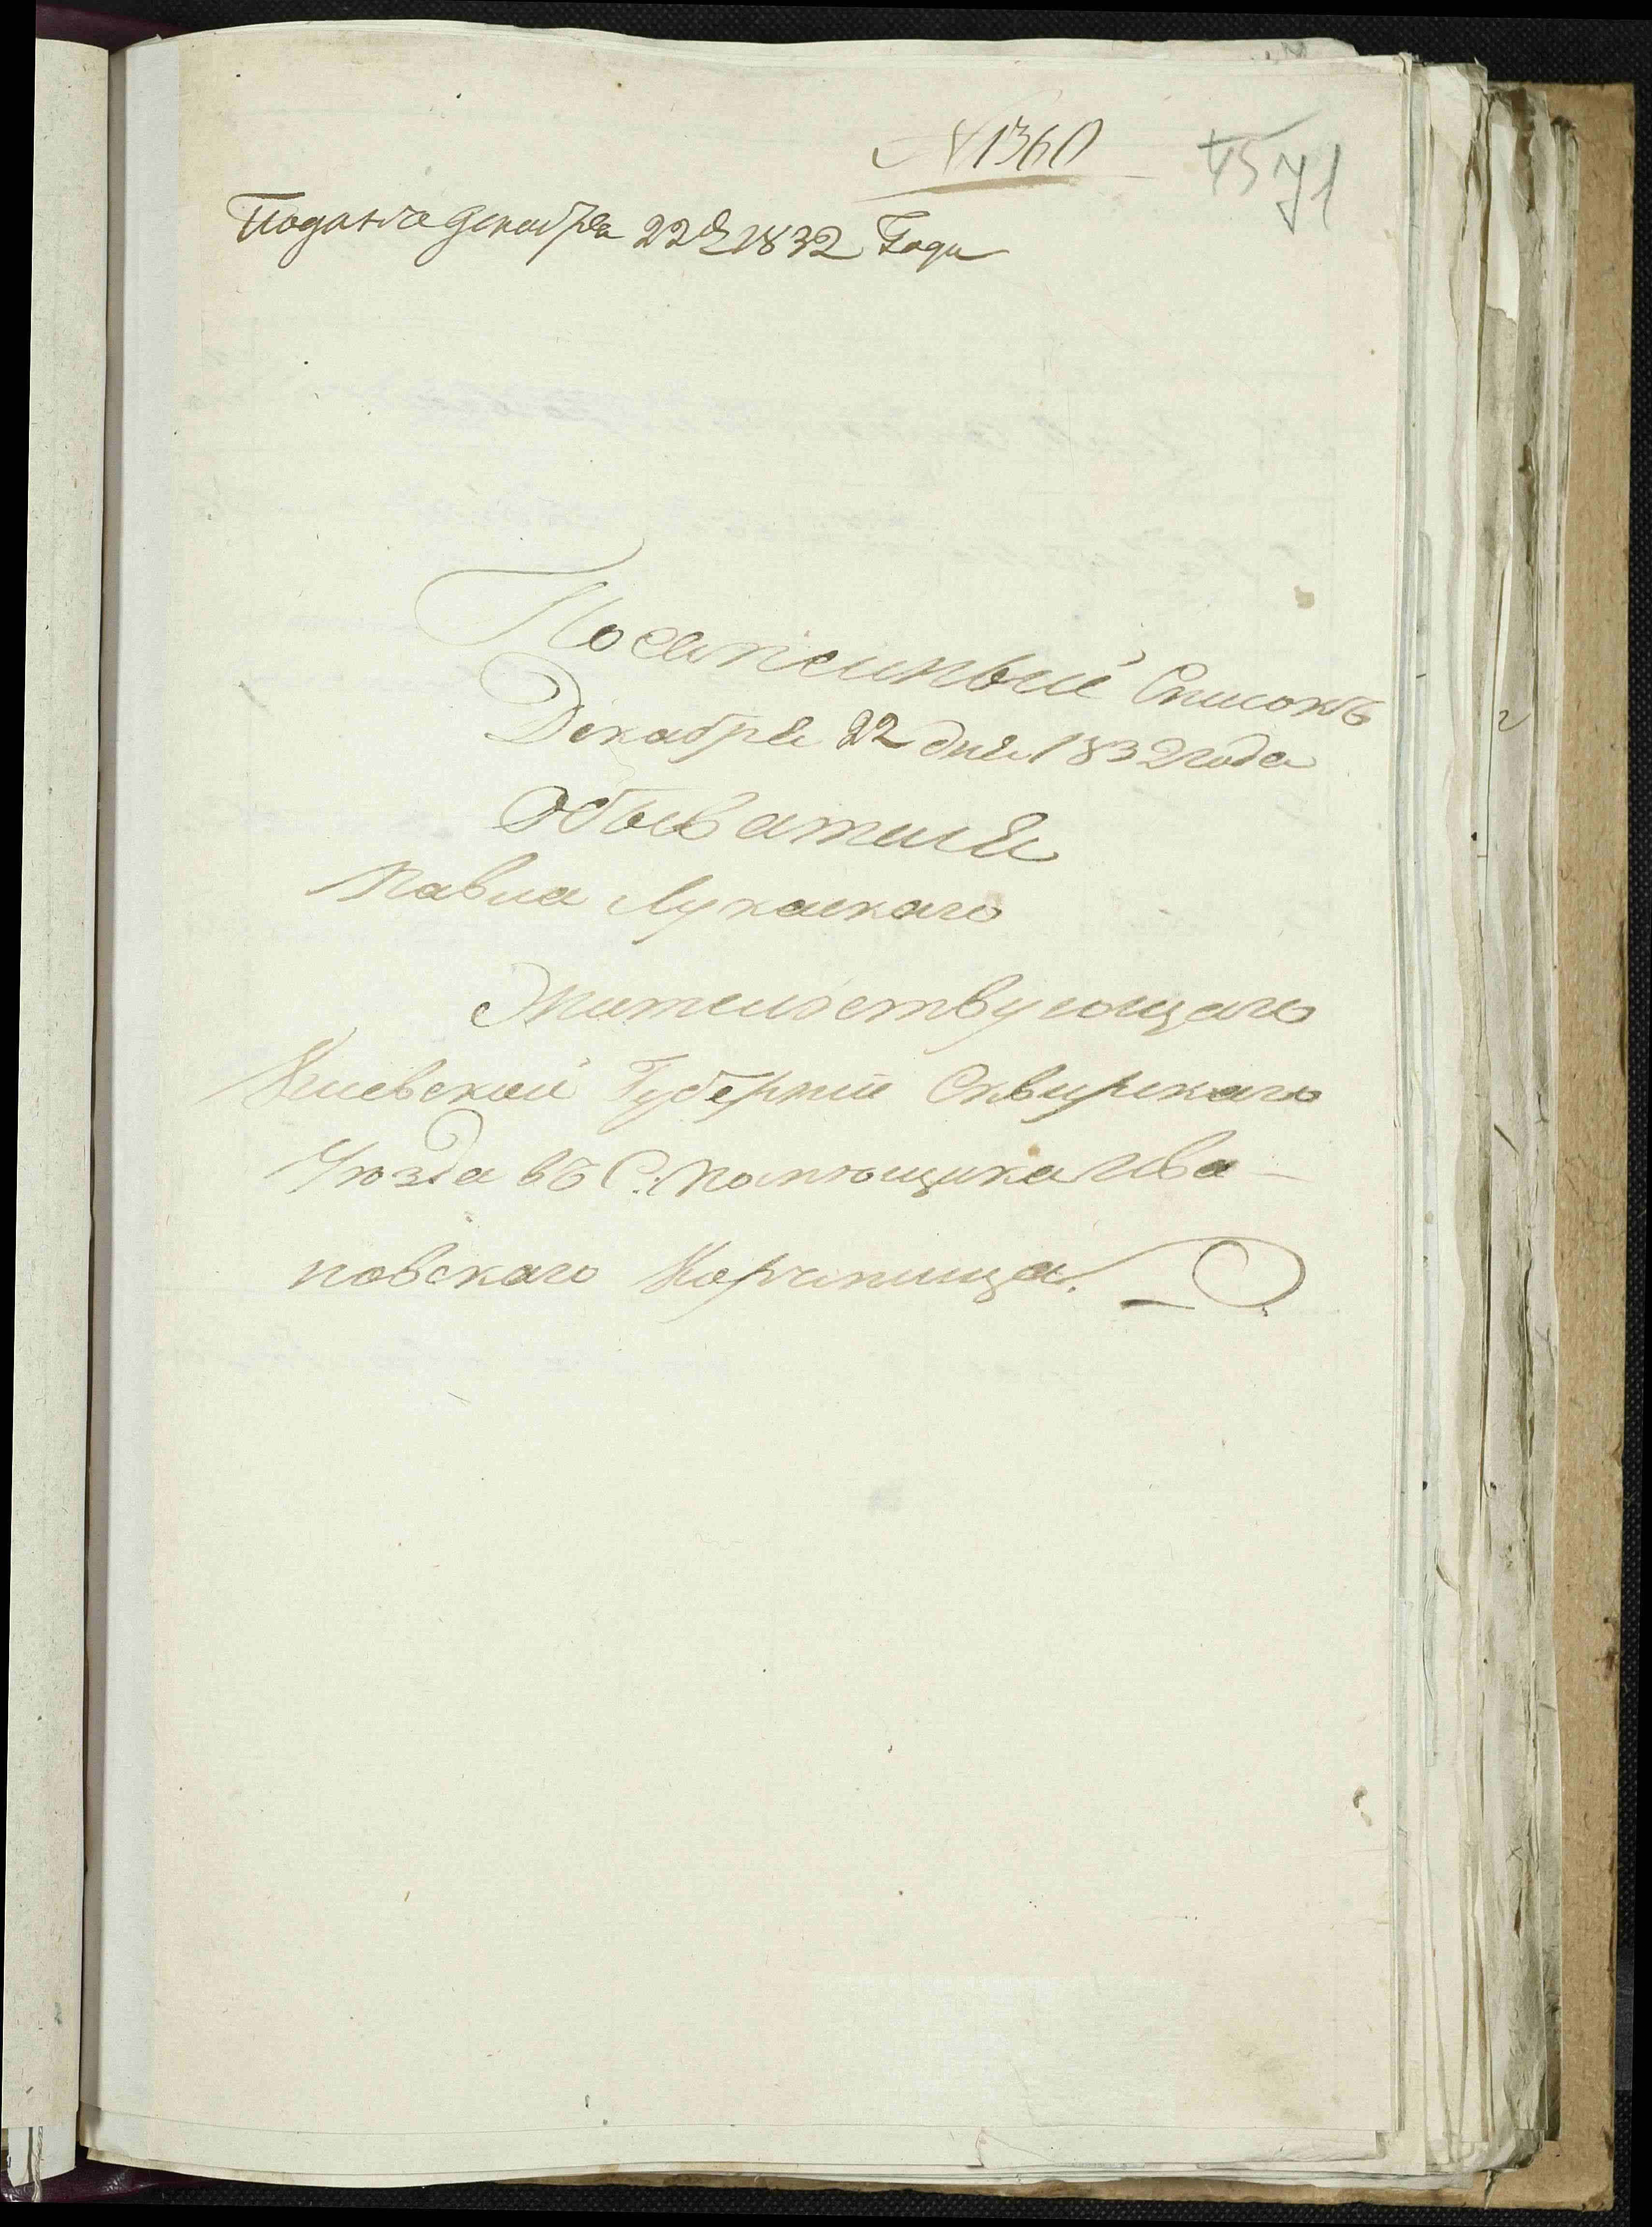 № 1360
45 71
Подано Декабря 22 д 1832 Года
Посемейный Списокъ
Декабря 22 дня 1832 года
Обывателя
Павла Лукаскаго
Жительствующаго
Киевской Губернии Сквирскаго
Уюзда въ С. помющика Ива-
новскаго Корчинцца.